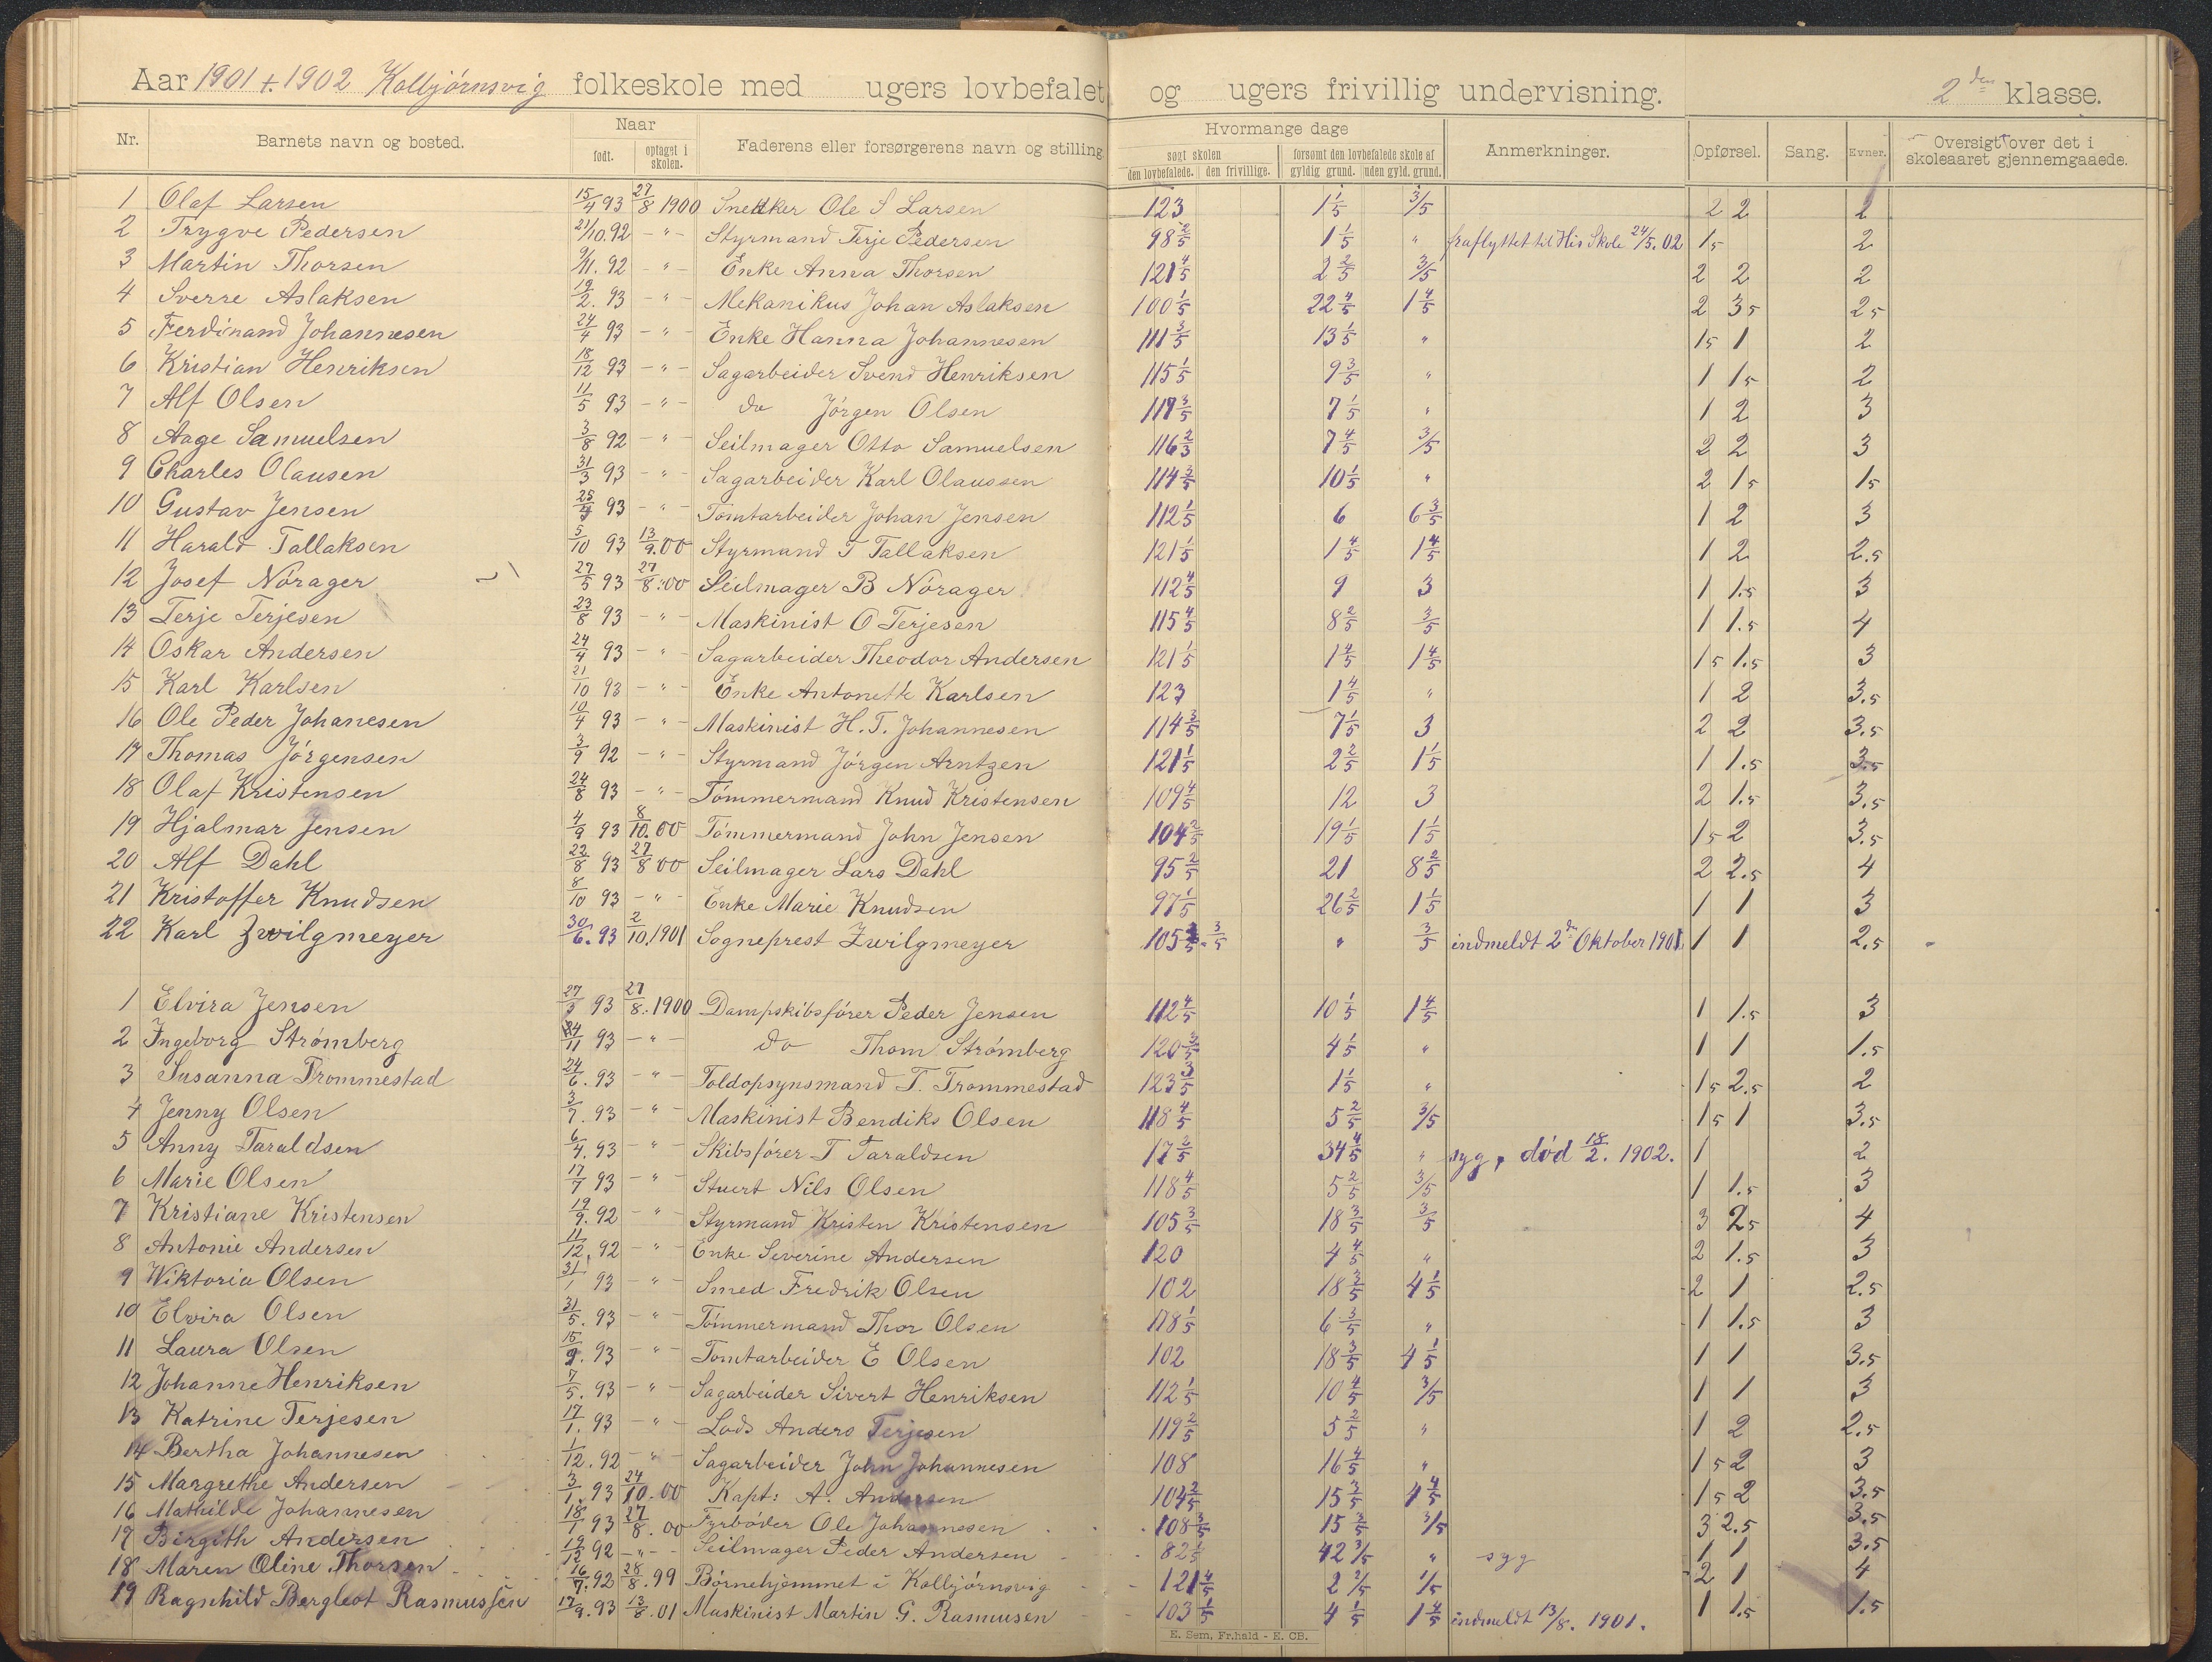 Aar 1901 + 1902 Kolbjörnsvig folkeskole med ugers lovbefalet og ugers frivillig undervisning. 2den klasse.
Nr. Barnets navn og bosted. Naar født. optaget i skolen. Faderens eller forsørgerens navn og stilling Hvormange dage søgt skolen den lovbefalede. den frivillige. forsømt den lovbefalede skole af gyldig grund. uden gyld. grund. Anmerkninger. Opførsel. Sang. Evner. Oversigt over det i skoleaaret gjennemgaaede.
1 Olaf Larsen 15/4 93 27/8 1900 Snekker Ole S Larsen 123 1 1/5 3/5 2 2 2
2 Trygve Pedersen 21/10. 92 - " - Styrmand Terje Pedersen 98 2/5 1 1/5 " fraflyttet til His Skole 24/5. 02 15 2
3 Martin Thorsen 9/11. 92 - " - Enke Anna Thorsen 121 4/5 2 2/5 3/5 2 2 2
4 Sverre Aslaksen 19/2. 93 - " - Mekanikus Johan Aslaksen 100 1/5 22 4/5 1 4/5 2 35 25
5 Ferdinand Johannesen 24/4 93 - " - Enke Hanna Johannesen 111 3/5 13 1/5 " 15 1 2
6 Kristian Henriksen 18/12 93 - " - Sagarbeider Svend Henriksen 115 1/5 9 3/5 " 1 15 2
7 Alf Olsen 11/5 93 - " - do Jörgen Olsen 117 3/5 7 1/5 " 1 2 3
8 Aage Samuelsen 3/8 92 - " - Seilmager Otto Samuelsen 116 2/3 7 4/5 3/5 2 2 3
9 Charles Olausen 31/3 93 - " - Sagarbeider Karl Olaussen 114 3/5 10 1/5 " 2 15 15
10 Gustav Jensen 93 - " - Tomtarbeider Johan Jensen 112 1/5 6 6 3/5 1 2 3
11 Harald Tallaksen 5/10 93 13/9.00 Styrmand T Tallaksen 121 1/5 1 4/5 1 4/5 1 2 2.5
12 Josef Nörager 27/5 93 27/8.00 Seilmager B Nörager 112 4/5 9 3 1 1.5 3
13 Terje Terjesen 23/8 93 - " - Maskinist O Terjesen 115 4/5 8 2/5 3/5 1 1.5 4
14 Oskar Andersen 24/4 93 - " - Sagarbeider Theodor Andersen 121 1/5 1 4/5 1 4/5 15 1.5 3
15 Karl Karlsen 21/10 93 - " - Enke Antonette Karlsen 123 1 4/5 " 1 2 3.5
16 Ole Peder Johanesen 10/4 93 - " - Maskinist H. T. Johannesen 114 3/5 7 1/5 3 2 2 3.5
17 Thomas Jörgensen 3/9 92 - " - Styrmand Jörgen Arntzen 121 1/5 2 2/5 1 1/5 1 1.5 3.5
18 Olaf Kristensen 24/8 93 - " - Tömmermand Knud Kristensen 109 4/5 12 3 2 1.5 3.5
19 Hjalmar Jensen 4/9 93 8/10.00 Tömmermand John Jensen 104 2/5 19 1/5 1 1/5 15 2 3.5
20 Alf Dahl 22/8 93 27/8 00 Seilmager Lars Dahl 95 2/5 21 8 2/5 2 2.5 4
21 Kristoffer Knudsen 8/10 93 - " - Enke Marie Knudsen 97 1/5 26 2/5 1 1/5 1 1 3
22 Karl Zwilgmeyer 30/6. 93 2/10.1901 Sogneprest Zwilgmeyer 105 3/5 " 3/5 indmeldt 2den Oktober 1901 1 1 2.5
1 Elvira Jensen 27/3 93 27/8.1900 Dampskibsförer Peder Jensen 112 4/5 10 1/5 1 4/5 1 1.5 3
2 Ingeborg Strömberg 93 - " - do Thom Strömberg 120 3/5 4 1/5 " 1 1 1.5
3 Susanna Trommestad 24/6. 93 - " - Toldopsynsmand T. Trommestad 123 3/5 1 1/5 " 15 2.5 2
4 Jenny Olsen 3/7. 93 - " - Maskinist Bendiks Olsen 118 4/5 5 2/5 3/5 15 1 3.5
5 Anny Taraldsen 6/4. 93 - " - Skibsförer T Taraldsen 17 2/5 34 4/5 " syg, död 18/2. 1902. 1 2
6 Marie Olsen 17/7 93 - " - Stuert Nils Olsen 118 4/5 5 2/5 3/5 1 1.5 3
7 Kristiane Kristensen 19/9. 92 - " - Styrmand Kristen Kristensen 105 3/5 18 3/5 3/5 3 25 4
8 Antonie Andersen 11/12. 92 - " - Enke Severine Andersen 120 4 4/5 " 2 1.5 3
9 Wiktoria Olsen 31/1 93 - " - Smed Fredrik Olsen 102 18 3/5 4 1/5 2 1 2.5
10 Elvira Olsen 31/5. 93 - " - Tömmermand Thor Olsen 118 1/5 6 3/5 " 1 1.5 3
11 Laura Olsen 15/9. 93 - " - Tomtarbeider E Olsen 102 18 3/5 4 1/5 1 1 3.5
12 Johanne Henriksen 7/5. 93 - " - Sagarbeider Sivert Henriksen 112 1/5 10 4/5 3/5 1 1 3
13 Katrine Terjesen 17/1. 93 - " - Lods Anders Terjesen 119 2/5 5 2/5 " 1 2 2.5
14 Bertha Johannesen 1/12. 92 - " - Sagarbeider John Johannesen 108 16 4/5 " 15 2 3
15 Margrethe Andersen 3/1. 93 24/10.00 Kapt: A. Andersen 104 2/5 15 3/5 4 4/5 15 2 3.5
16 Mathilde Johannesen 18/1 93 27/8. 00 Fyrböder Ole Johannesen 108 3/5 15 3/5 3/5 3 2.5 3.5
17 Birgith Andersen 19/12 92 - " - Seilmager Peder Andersen 82 1/5 42 3/5 " syg 1 1 3.5
18 Maren Oline Thorsen 16/7. 92 28/8. 99 Börnehjemmet i Kolbjörnsvig 121 4/5 2 2/5 1/5 2 1 4
19 Ragnhild Bergleot Rasmussen 17/9. 93 13/8. 01 Maskinist Martin G. Rasmusen 103 1/5 4 1/5 1 4/5 indmeldt 13/8. 1901. 1 1.5 1.5
E. Sem, Fr.hald - E. CB.